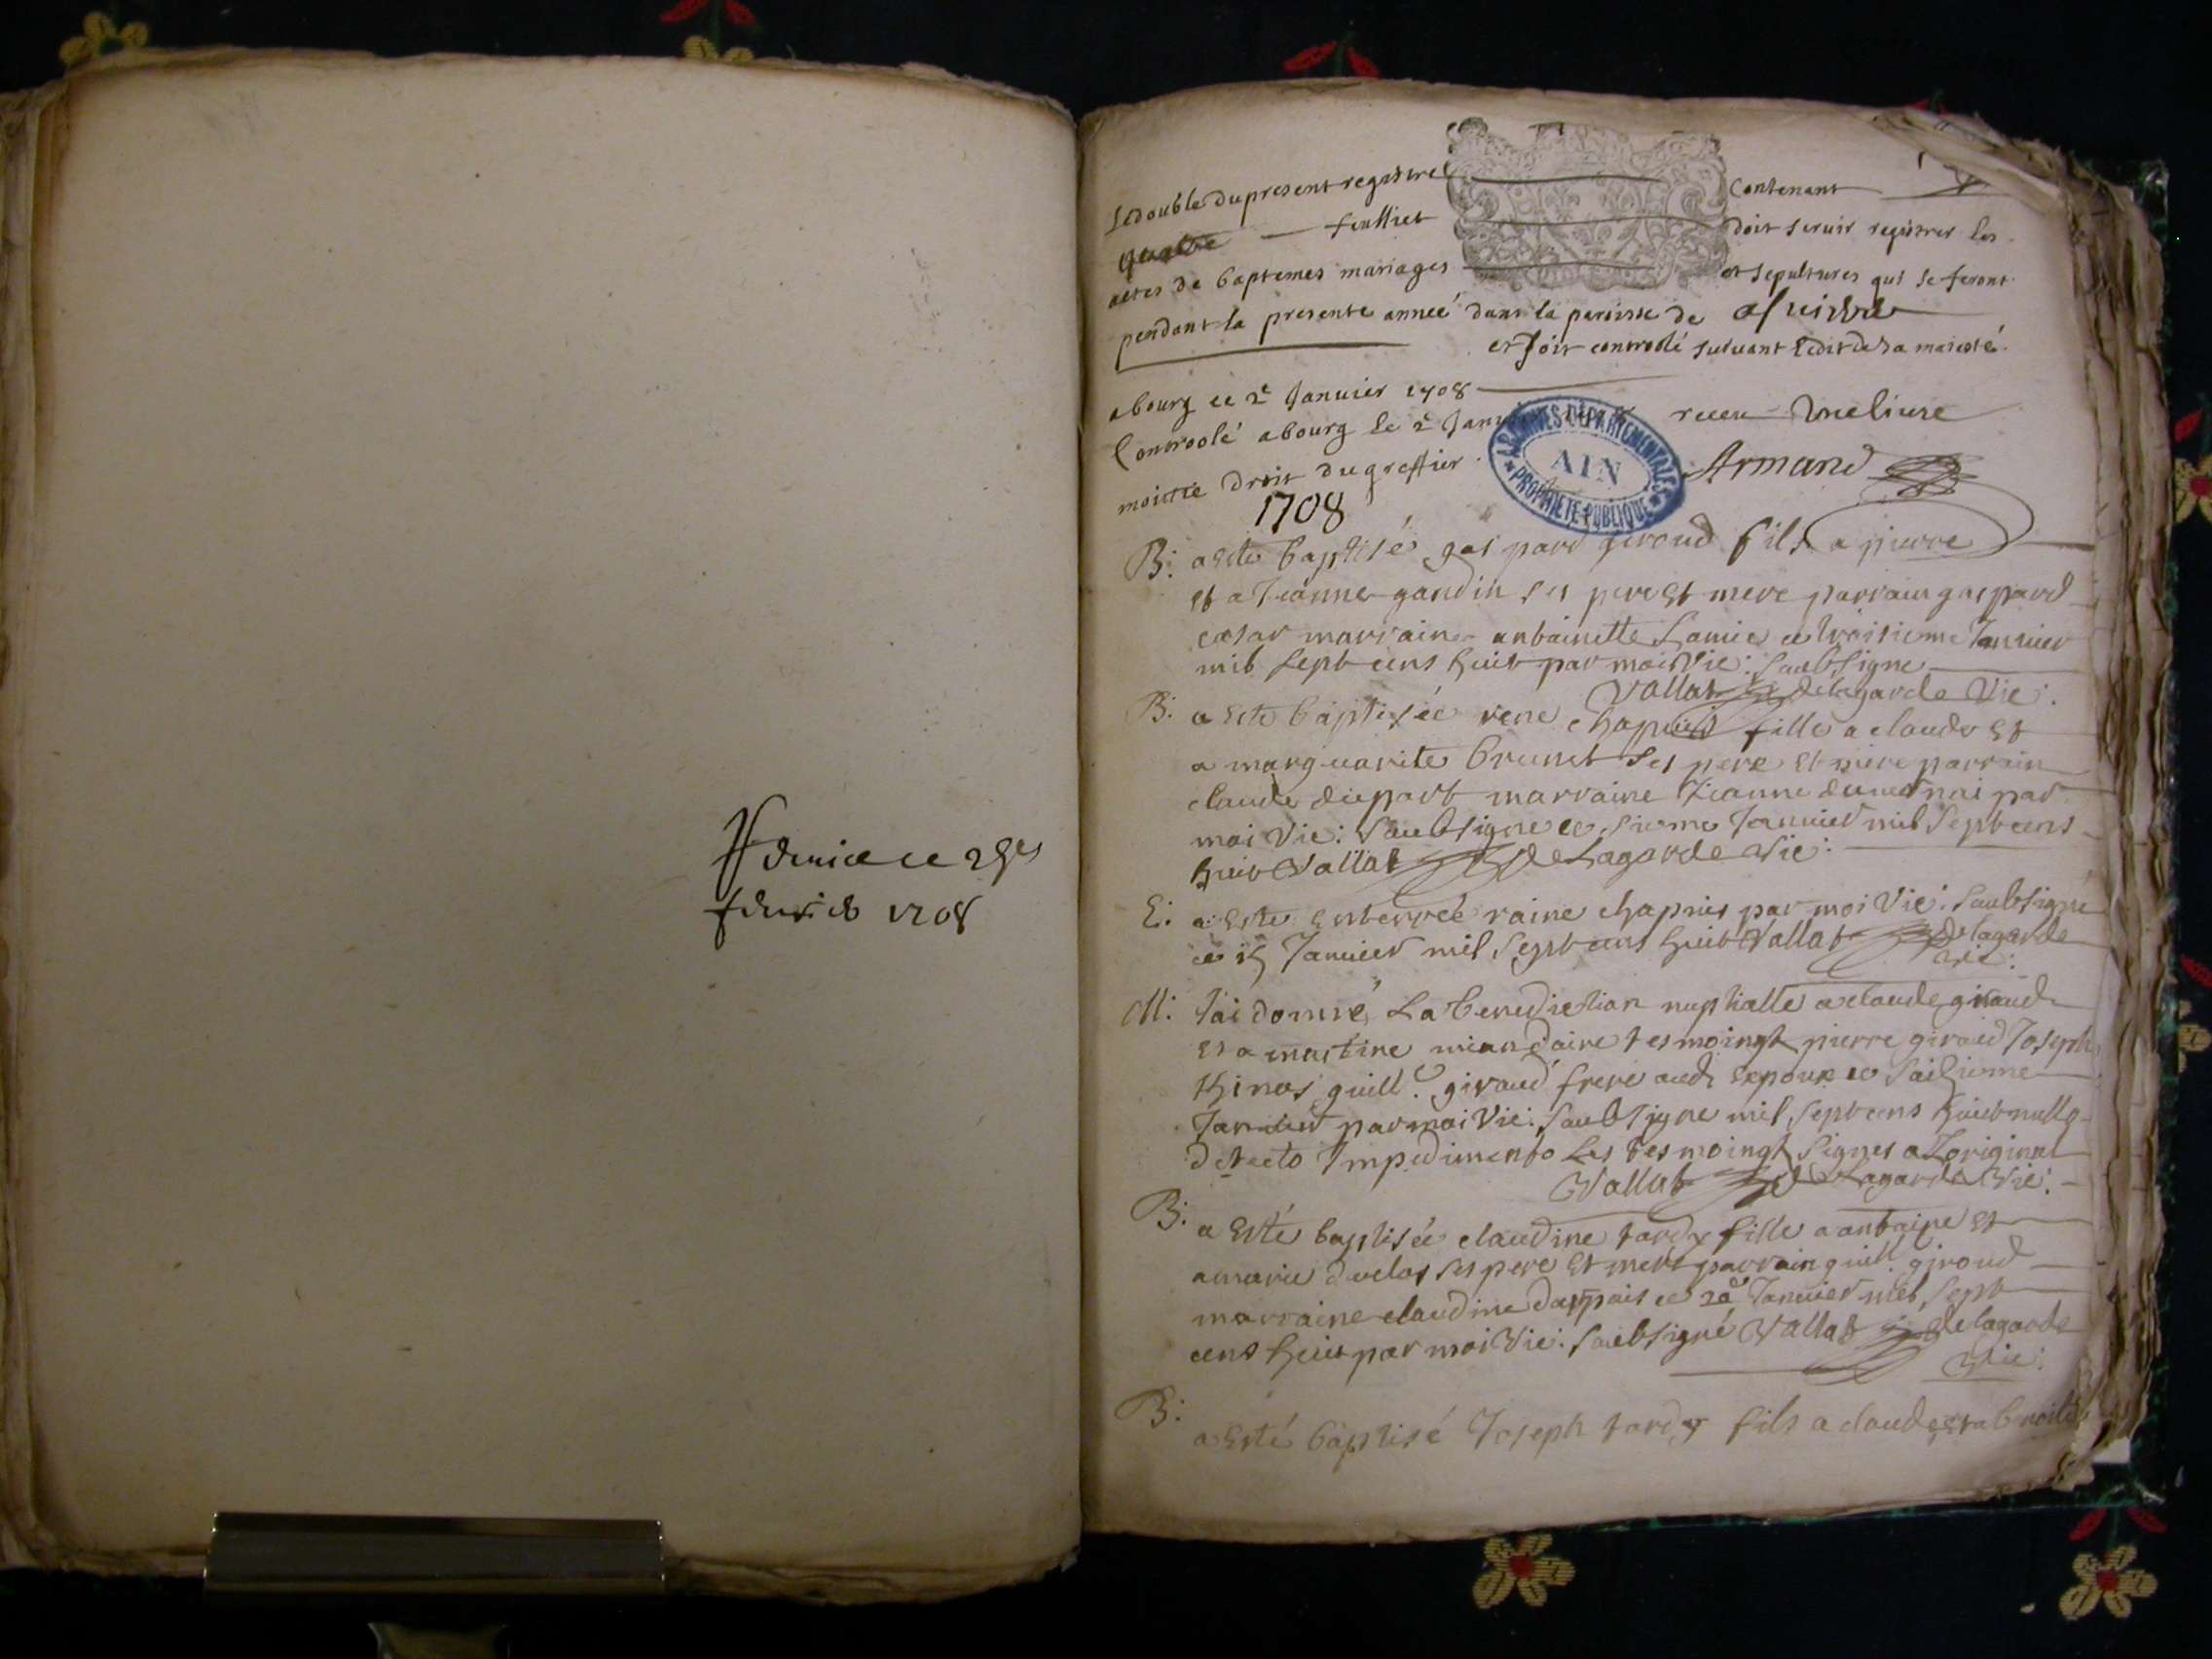 ce 29es
1708
Le double du present registre contenant
feulliet doit seruir registrer les
actes de baptemes mariages et sepultures qui se feront
pendant la presente anneé dans la paroisse de
et soit controolé suiuant Ledit de sa maiesté.
abourg ce 2e Januier 1708
Controolé abourg le 2e receu une liure
moittie droit du greffier. Armand
ARCHIVES DEPARTEMENTALES
AIN
PROPRIETE PUBLIQUE
1708
B: a esté baptisé gaspard giroud fils a pierre
et a Jeanne gandin ses pere et mere parrain gaspard
cesar marraine anthoinette Lamie ce troisieme Januier
mil sept cens huit par moi Vic: soubsigne
Vallat delagarde Vic:
B: a esté baptisée rene chapuis fille a claude et
a marguarite brunet ses pere et mere parrain
claude marraine Jeanne par
moi Vic: soubsigne ce Januier mil sept cens
huit Vallat de Lagarde Vic:
E: a esté enterreé raine chapuis par moi Vic: soubsigné
ce 15 Januier mil sept cens huit Vallat delagarde
Vic:
M: Jai donné La benediction nuptialle a claude giraud
et a martine tesmoingt pierre giraud Joseph
guill.e giraud frere aud. expoux ce
Januier par moi Vic: soubsigne mil sept cens huit nullo
detecto Impedimento Les tesmoingt signes a Loriginal
Vallat de Lagarde Vic:
B: a esté baptisée claudine tardy fille a antoine et
a marie duclos ses pere et mere parrain guill. giroud
marraine claudine ce 20e Januier mil sept
cens huit par moi Vic: soubsigné Vallat delagarde
Vic:
B: a esté baptisé Joseph tardy fils a claude et a